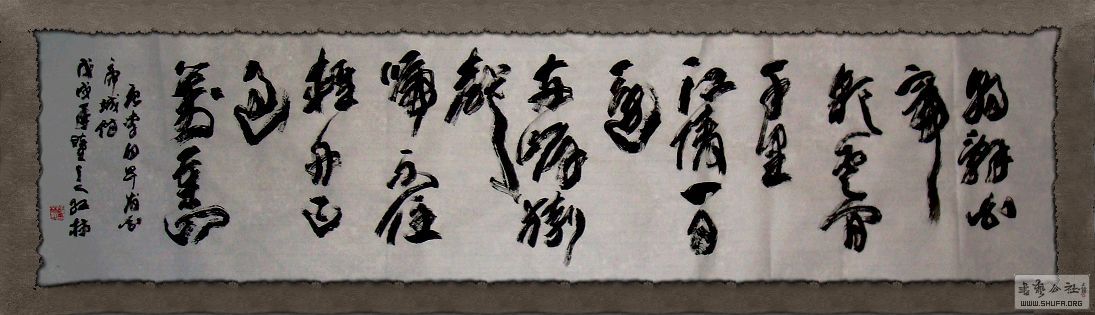 朝辭白
帝
彩雲間
千里
江陵一日
還
兩岸猿
聲
啼不住
輕舟已
過
萬重山
唐李白早發白
帝城詩
戊戌
书艺公社
WWW.SHUFA.ORG